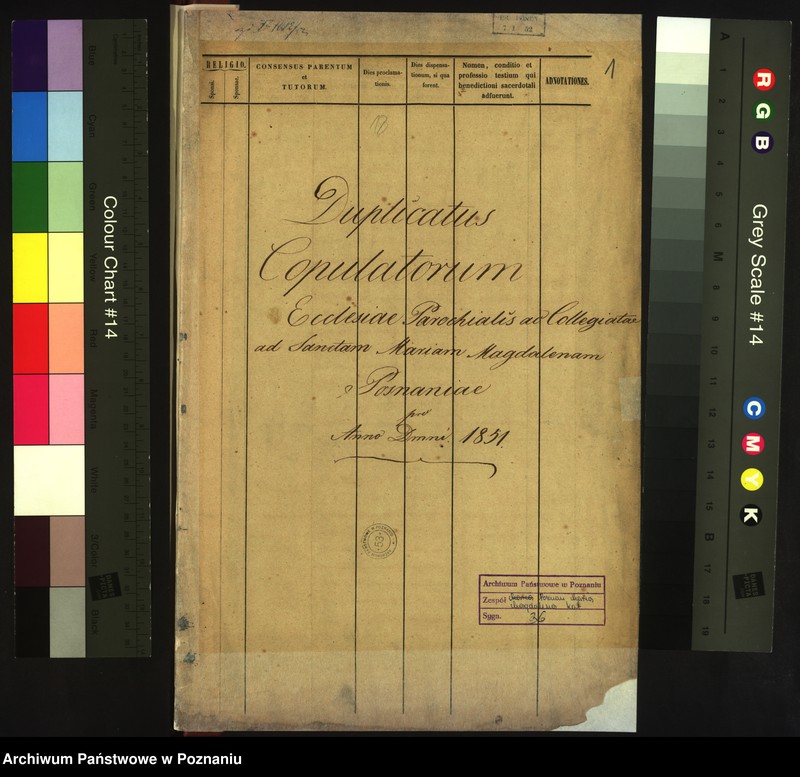 1
RELIGIO.
Sponsi.
Sponsae.
CONSENSUS PARENTUM
et
TUTORUM.
Dies proclama-
tionis.
Dies dispensa-
tionum, si quae
forent.
Nomen, conditio et
professio testium qui
benedictioni sacerdotali
adfuerunt.
ADNOTATIONES.
Duplicatus
Copulatorum
Ecclesiae Parochialis ac Collegiatae
ad Sanctam Mariam Magdalenam
Posnaniae
pro
Anno Dmni. 1851.
53
Archiwum Państwowe w Poznaniu
Zespół
Sygn. 36
Colour Chart #14
Blue
Cyan
Green
Yellow
Red
Magenta
White
3/Color
Black
Grey Scale #14
R
G
B
C
M
Y
K
A
1
2
3
4
5
6
M
8
9
10
11
12
13
14
15
B
17
18
19
Archiwum Państwowe w Poznaniu